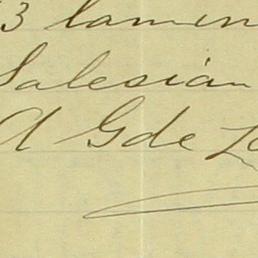 3 lamin
Salesian
A Gde